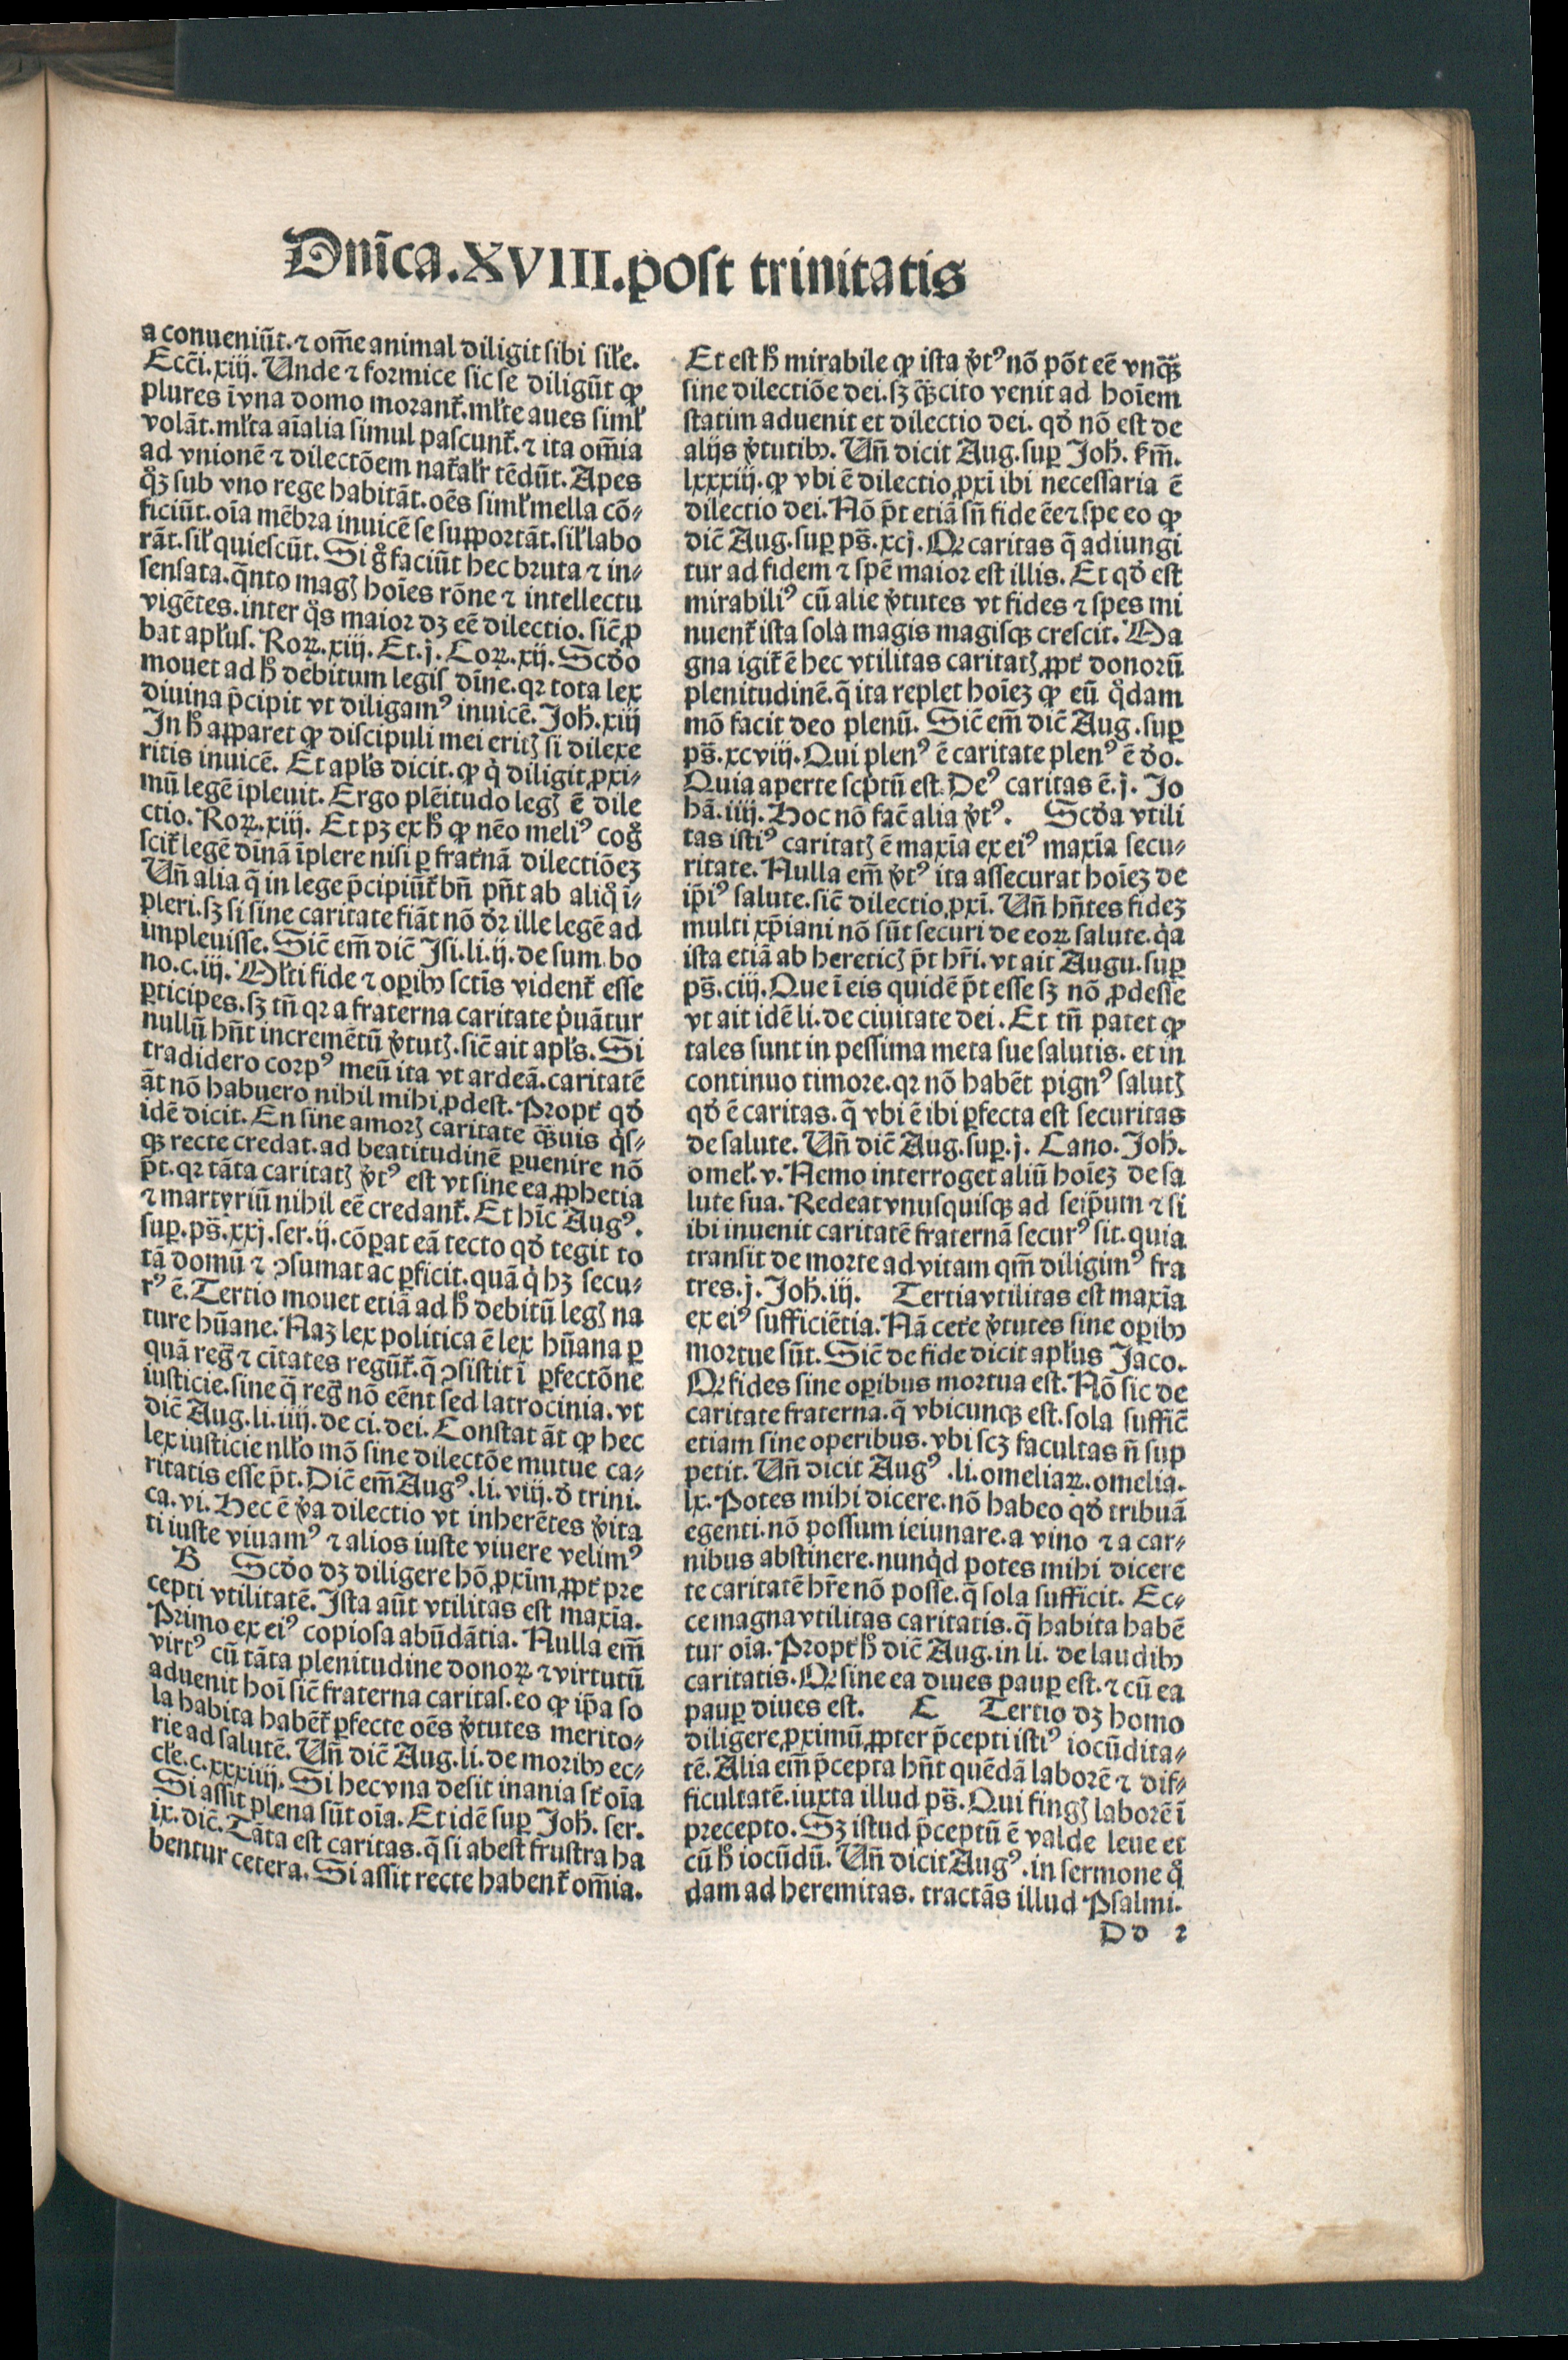 Dnīca.XVIII.post trinitatis
a conueniūt.⁊ om̄e animal diligit sibi sił'e.
Ecc̄i.xiij. Unde ⁊ formice sic se diligūt ꝙ
plures ī vna domo moranť.mł'te aues simł'
volāt.mł'ta aīalia simul pascunť.⁊ ita om̄ia
ad vnionē ⁊ dilectōem nať̄alr' tēdūt. Apes
qͦꝫ sub vno rege habitāt.oēs simł' mella cō⸗
ficiūt.oīa mēbra inuicē se supportāt.sił' labo
rāt.sił' quiescūt. Si gͦ faciūt hec bruta ⁊ in⸗
sensata.q̄nto magꝭ hoīes rōne ⁊ intellectu
vigētes.inter qͦs maior dꝫ eē dilectio. sic̄ ꝓ
bat apł'us. Roꝝ.xiij. Et.j. Coꝝ.xij. Scd̓o
mouet ad h̓ debitum legis dīne.qꝛ tota lex
diuina p̄cipit vt diligamꝰ inuicē. Joh̓.xiij
In h̓ apparet ꝙ discipuli mei eritꝭ si dilexe
ritis inuicē. Et apł's dicit.ꝙ qͥ diligit ꝓxi⸗
mū legē ipleuit. Ergo plēitudo legꝭ ē dile
ctio. Roꝝ.xiij. Et pꝫ ex h̓ ꝙ nēo meliꝰ cogͦ
sciť legē dīnā īplere nisi ꝑ frať̄nā dilectiōeꝫ
Uñ alia q̄ in lege p̄cipiūť bñ pñt ab aliqͦ ī⸗
pleri.sꝫ si sine caritate fiāt nō dr̄ ille legē ad
impleuisse. Sic̄ em̄ dic̄ Jsi.li.ij. de sum. bo
no.c.iij. Mł'ti fide ⁊ oꝑibꝰ sctīs videnť esse
ꝑticipes.sꝫ tñ qꝛ a fraterna caritate pͥuātur
nullū hñt incremētū v̓tutꝭ.sic̄ ait apł's. Si
tradidero corpꝰ meū ita vt ardeā.caritatē
āt nō habuero nihil mihi ꝓdest. Propť qd̓
idē dicit. En sine amorꝭ caritate q̄ꝫuis qͥs⸗
qꝫ recte credat.ad beatitudinē ꝑuenire nō
p̄t.qꝛ tāta caritatꝭ v̓tꝰ est vt sine ea ꝓphetia
⁊ martyriū nihil eē credanť. Et hīc Augꝰ.
suꝑ.ps̄.xxj.ser.ij.cōꝑat eā tecto qd̓ tegit to
tā domū ⁊ ↄsumat ac ꝑficit.quā qͥ hꝫ secu⸗
rꝰ ē. Tertio mouet etiā ad h̓ debitū legꝭ na
ture hūane. Naꝫ lex politica ē lex hūana ꝑ
quā reg̃ ⁊ cītates regūť.q̄ ↄsistit ī ꝑfectōne
iusticie.sine q̄ reg̃ nō eēnt sed latrocinia.vt
dic̄ Aug.li.iiij.de ci.dei. Constat āt ꝙ hec
lex iusticie nłło mō sine dilectōe mutue ca⸗
ritatis esse p̄t. Dic̄ em̄ Augꝰ.li.viij.d̓ trini.
ca.vi. Hec ē v̓a dilectio vt inherētes v̓ita
ti iuste viuamꝰ ⁊ alios iuste viuere velimꝰ
B Scd̓o dꝫ diligere hō ꝓxim̄ ꝓpť pre
cepti vtilitatē. Ista aūt vtilitas est maxīa.
Primo ex eiꝰ copiosa abūdātia. Nulla em̄
virtꝰ cū tāta plenitudine donoꝝ ⁊ virtutū
aduenit hoī sic̄ fraterna caritas.eo ꝙ ip̄a so
la habita habēť ꝑfecte oēs v̓tutes merito⸗
rie ad salutē. Uñ dic̄ Aug.li.de moribꝰ ec⸗
cł'e.c.xxxiiij. Si hec vna desit inania sť oīa
Si assit plena sūt oīa. Et idē suꝑ Joh̓. ser.
ix.dic̄. Tāta est caritas.q̄ si abest frustra ha
bentur cetera. Si assit recte habenť om̄ia.
Et est h̓ mirabile ꝙ ista v̓tꝰ nō pōt eē vnq̄ꝫ
sine dilectiōe dei.sꝫ q̄ꝫcito venit ad hoīem
statim aduenit et dilectio dei. qd̓ nō est de
alijs v̓tutibꝰ. Uñ dicit Aug.suꝑ Joh̓. ẜm̄.
lxxxiij.ꝙ vbi ē dilectio ꝓxi ibi necessaria ē
dilectio dei. Nō p̄t etiā sñ fide ēe ⁊ spe eo ꝙ
dic̄ Aug.suꝑ ps̄.xcj. Qꝛ caritas q̄ adiungi
tur ad fidem ⁊ spē maior est illis. Et qd̓ est
mirabiliꝰ cū alie v̓tutes vt fides ⁊ spes mi
nuenť ista sola magis magisqꝫ crescit. Ma
gna igiť ē hec vtilitas caritatꝭ ꝓpť donorū
plenitudinē.q̄ ita replet hoīeꝫ ꝙ eū qͦdam
mō facit deo plenū. Sic̄ em̄ dic̄ Aug.suꝑ
ps̄.xcviij. Qui plenꝰ ē caritate plenꝰ ē d̓o.
Quia aperte scptū est. Deꝰ caritas ē.j. Jo
hā.iiij. Hoc nō fac̄ alia v̓tꝰ. Scd̓a vtili
tas istiꝰ caritatꝭ ē maxīa ex eiꝰ maxīa secu⸗
ritate. Nulla em̄ v̓tꝰ ita assecurat hoīeꝫ de
ip̄iꝰ salute.sic̄ dilectio ꝓxī. Uñ hñtes fideꝫ
multi xp̄iani nō sūt securi de eoꝝ salute.qͥa
ista etiā ab hereticꝭ p̄t hr̄i.vt ait Augu.suꝑ
ps̄.ciij. Que ī eis quidē p̄t esse sꝫ nō ꝓdesse
vt ait idē li.de ciuitate dei. Et tñ patet ꝙ
tales sunt in pessima meta sue salutis. et in
continuo timore.qꝛ nō habēt pignꝰ salutꝭ
qd̓ ē caritas.q̄ vbi ē ibi ꝑfecta est securitas
de salute. Uñ dic̄ Aug.suꝑ.j. Cano. Joh̓.
omeł'.v. Nemo interroget aliū hoīeꝫ de sa
lute sua. Redeat vnusquisqꝫ ad seip̄um ⁊ si
ibi inuenit caritatē fraternā securꝰ sit.quia
transit de morte ad vitam qm̄ diligimꝰ fra
tres.j. Joh̓.iij. Tertia vtilitas est maxīa
ex eiꝰ sufficiētia. Nā ceťe v̓tutes sine oꝑibꝰ
mortue sūt. Sic̄ de fide dicit apł'us Jaco.
Qꝛ fides sine oꝑibus mortua est. Nō sic de
caritate fraterna.q̄ vbicunqꝫ est.sola suffic̄
etiam sine operibus.vbi scꝫ facultas ñ sup
petit. Uñ dicit Augꝰ.li.omeliaꝝ.omelia.
lx. Potes mihi dicere.nō habeo qd̓ tribuā
egenti.nō possum ieiunare.a vino ⁊ a car⸗
nibus abstinere.nunqͥd potes mihi dicere
te caritatē hr̄e nō posse.q̄ sola sufficit. Ec⸗
ce magna vtilitas caritatis.q̄ habita habē
tur oīa. Propť h̓ dic̄ Aug.in li. de laudibꝰ
caritatis. Qꝛ sine ea diues pauꝑ est.⁊ cū ea
pauꝑ diues est. C Tertio dꝫ homo
diligere ꝓximū ꝓpter p̄cepti istiꝰ iocūdita⸗
tē. Alia em̄ p̄cepta hñt quēdā laborē ⁊ dif⸗
ficultatē.iuxta illud ps̄. Qui fingꝭ laborē ī
precepto. Sꝫ istud p̄ceptū ē valde leue et
cū h̓ iocūdū. Uñ dicit Augꝰ.in sermone qͦ
dam ad heremitas. tractās illud Psalmi.
Dd 2